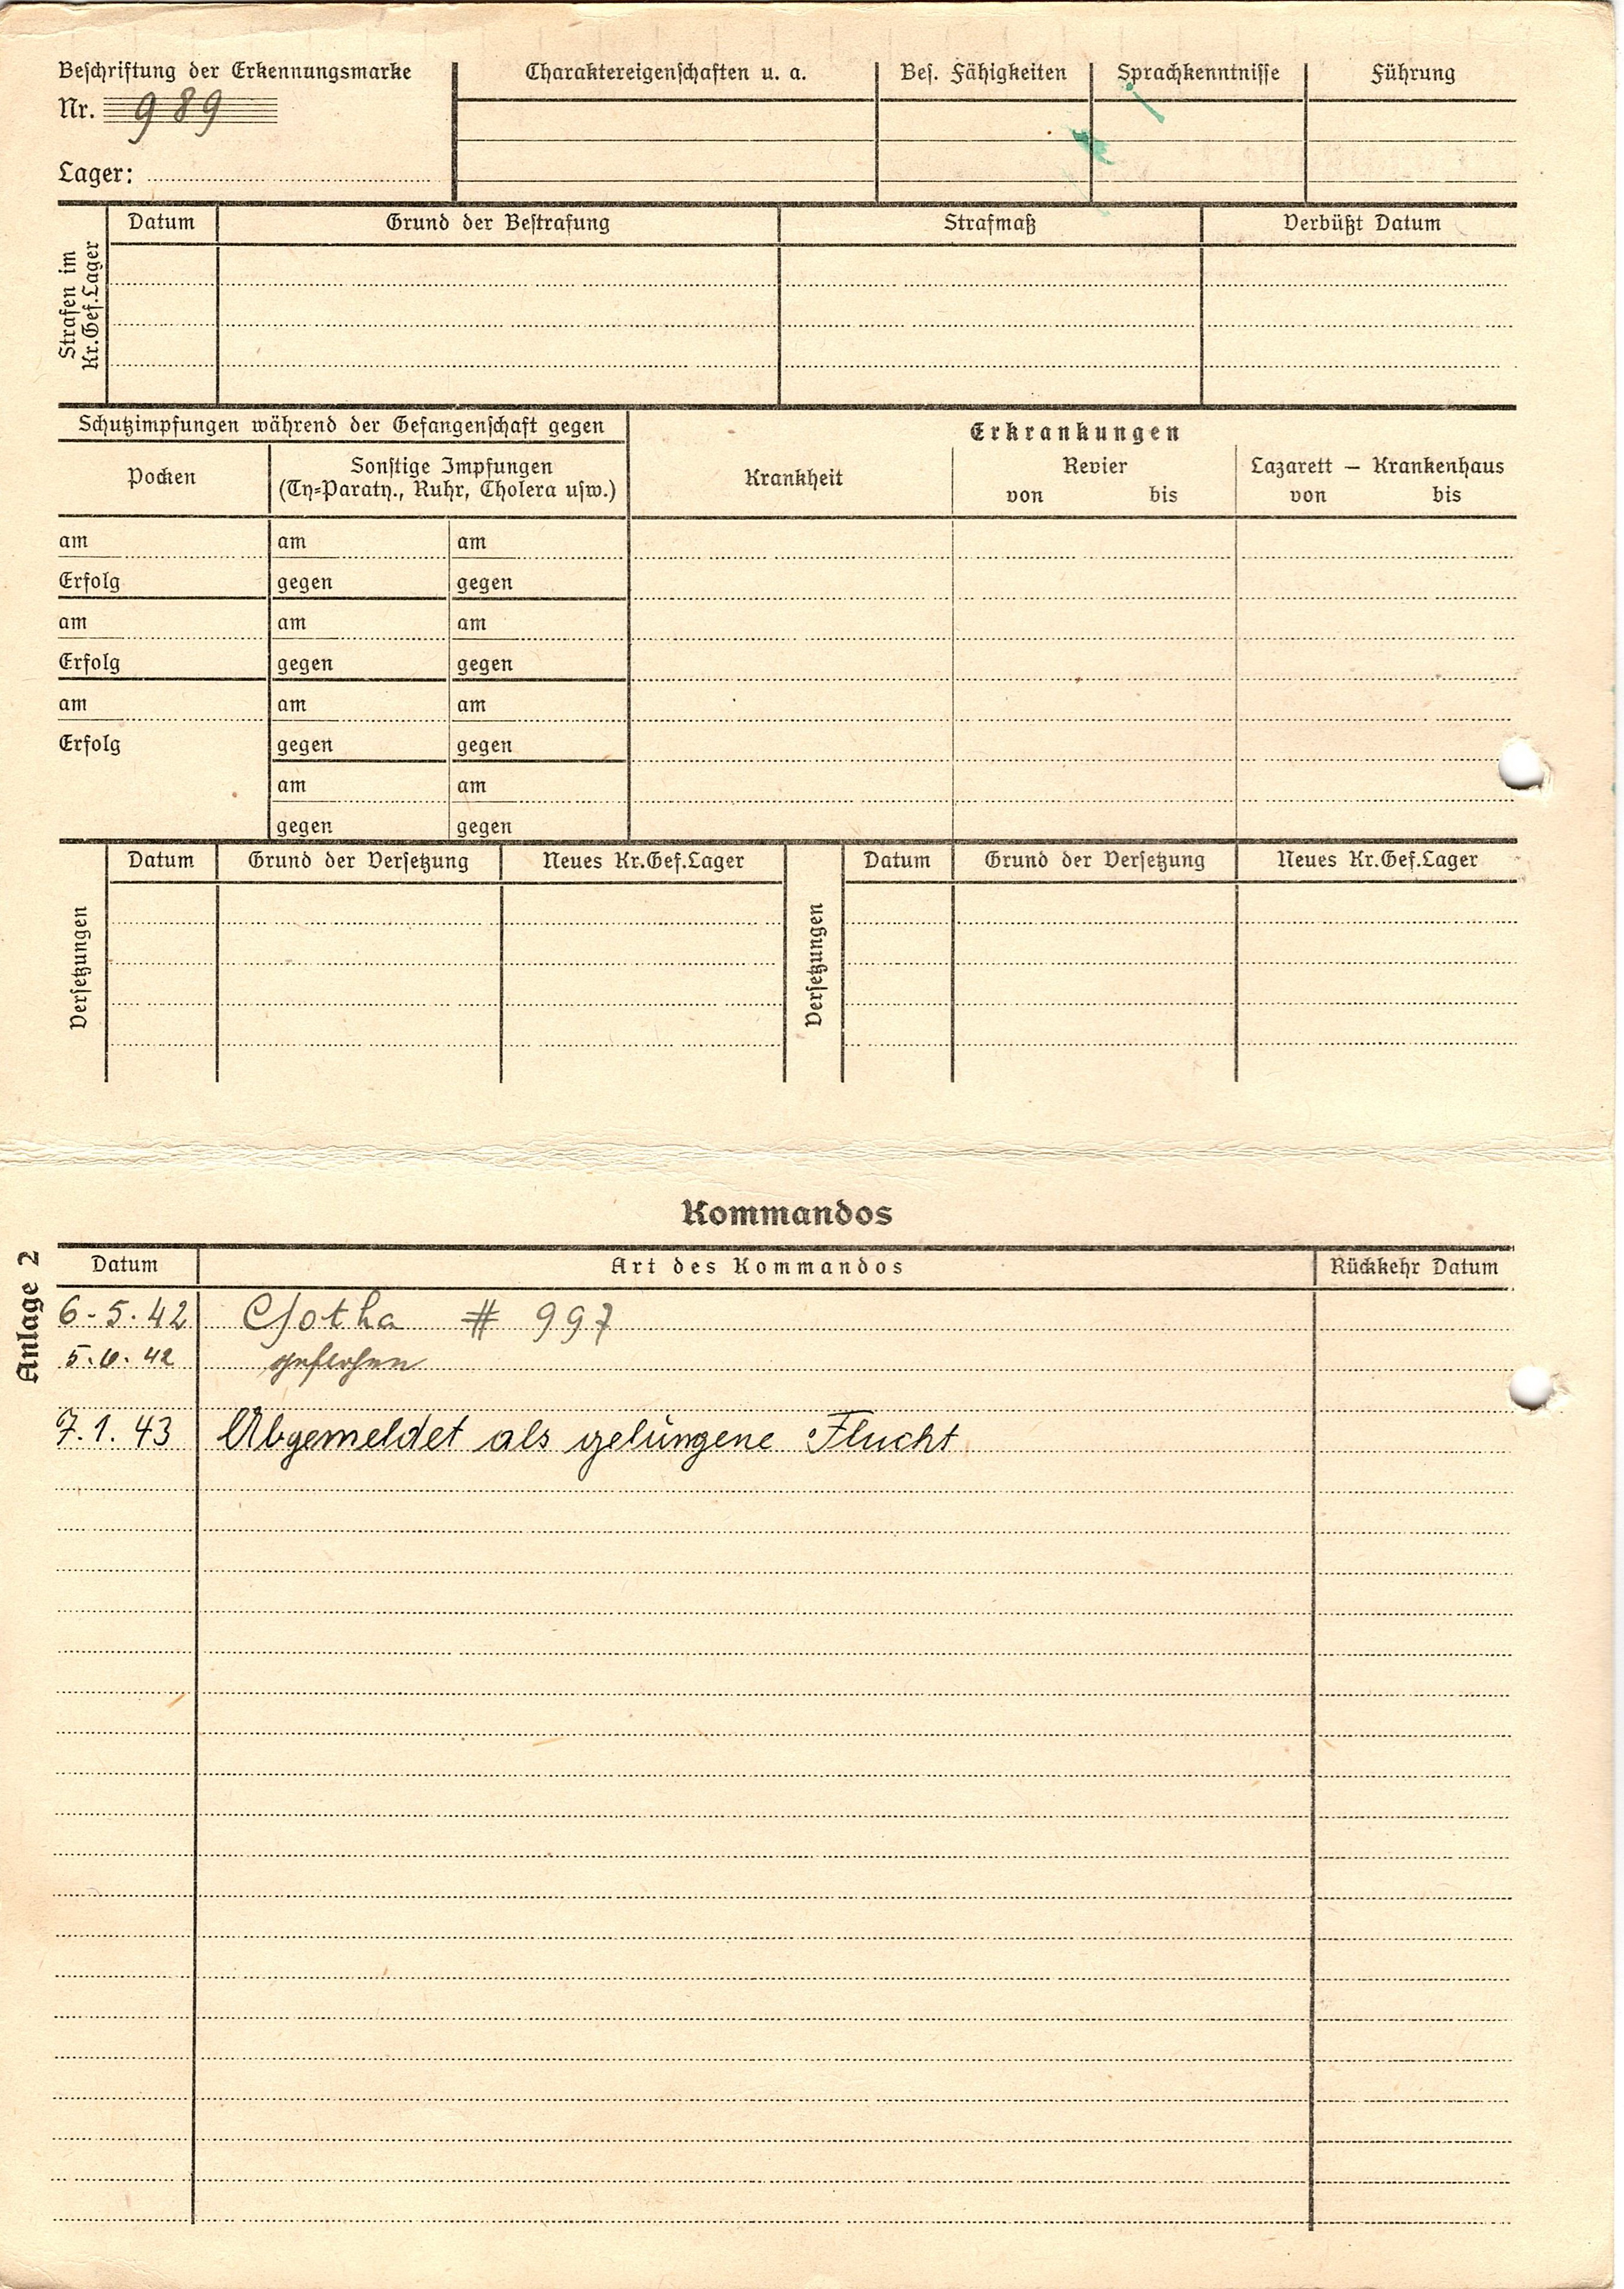 Beschriftung der Erkennungsmarke
Nr. 989
Lager:
Charaktereigenschaften u. a.
Bes. Fähigkeiten
Sprachkenntnisse
Führung
Strafen im
Kr.Gef.Lager
Datum
Grund der Bestrafung
Strafmaß
Verbüßt Datum
Schutzimpfungen während der Gefangenschaft gegen
Pocken
Sonstige Impfungen
(Ty=Paraty., Ruhr, Cholera usw.)
Erkrankungen
Krankheit
Revier
von bis
Lazarett — Krankenhaus
von bis
am am am
Erfolg gegen gegen
am am am
Erfolg gegen gegen
am am am
Erfolg gegen gegen
am am
gegen gegen
Versetzungen
Datum Grund der Versetzung Neues Kr.Gef.Lager
Versetzungen
Datum Grund der Versetzung Neues Kr.Gef.Lager
Kommandos
Anlage 2
Datum Art des Kommandos Rückkehr Datum
6-5.42 Gotha # 997
5.6.42 geflohen
7.1.43 Abgemeldet als gelungene Flucht